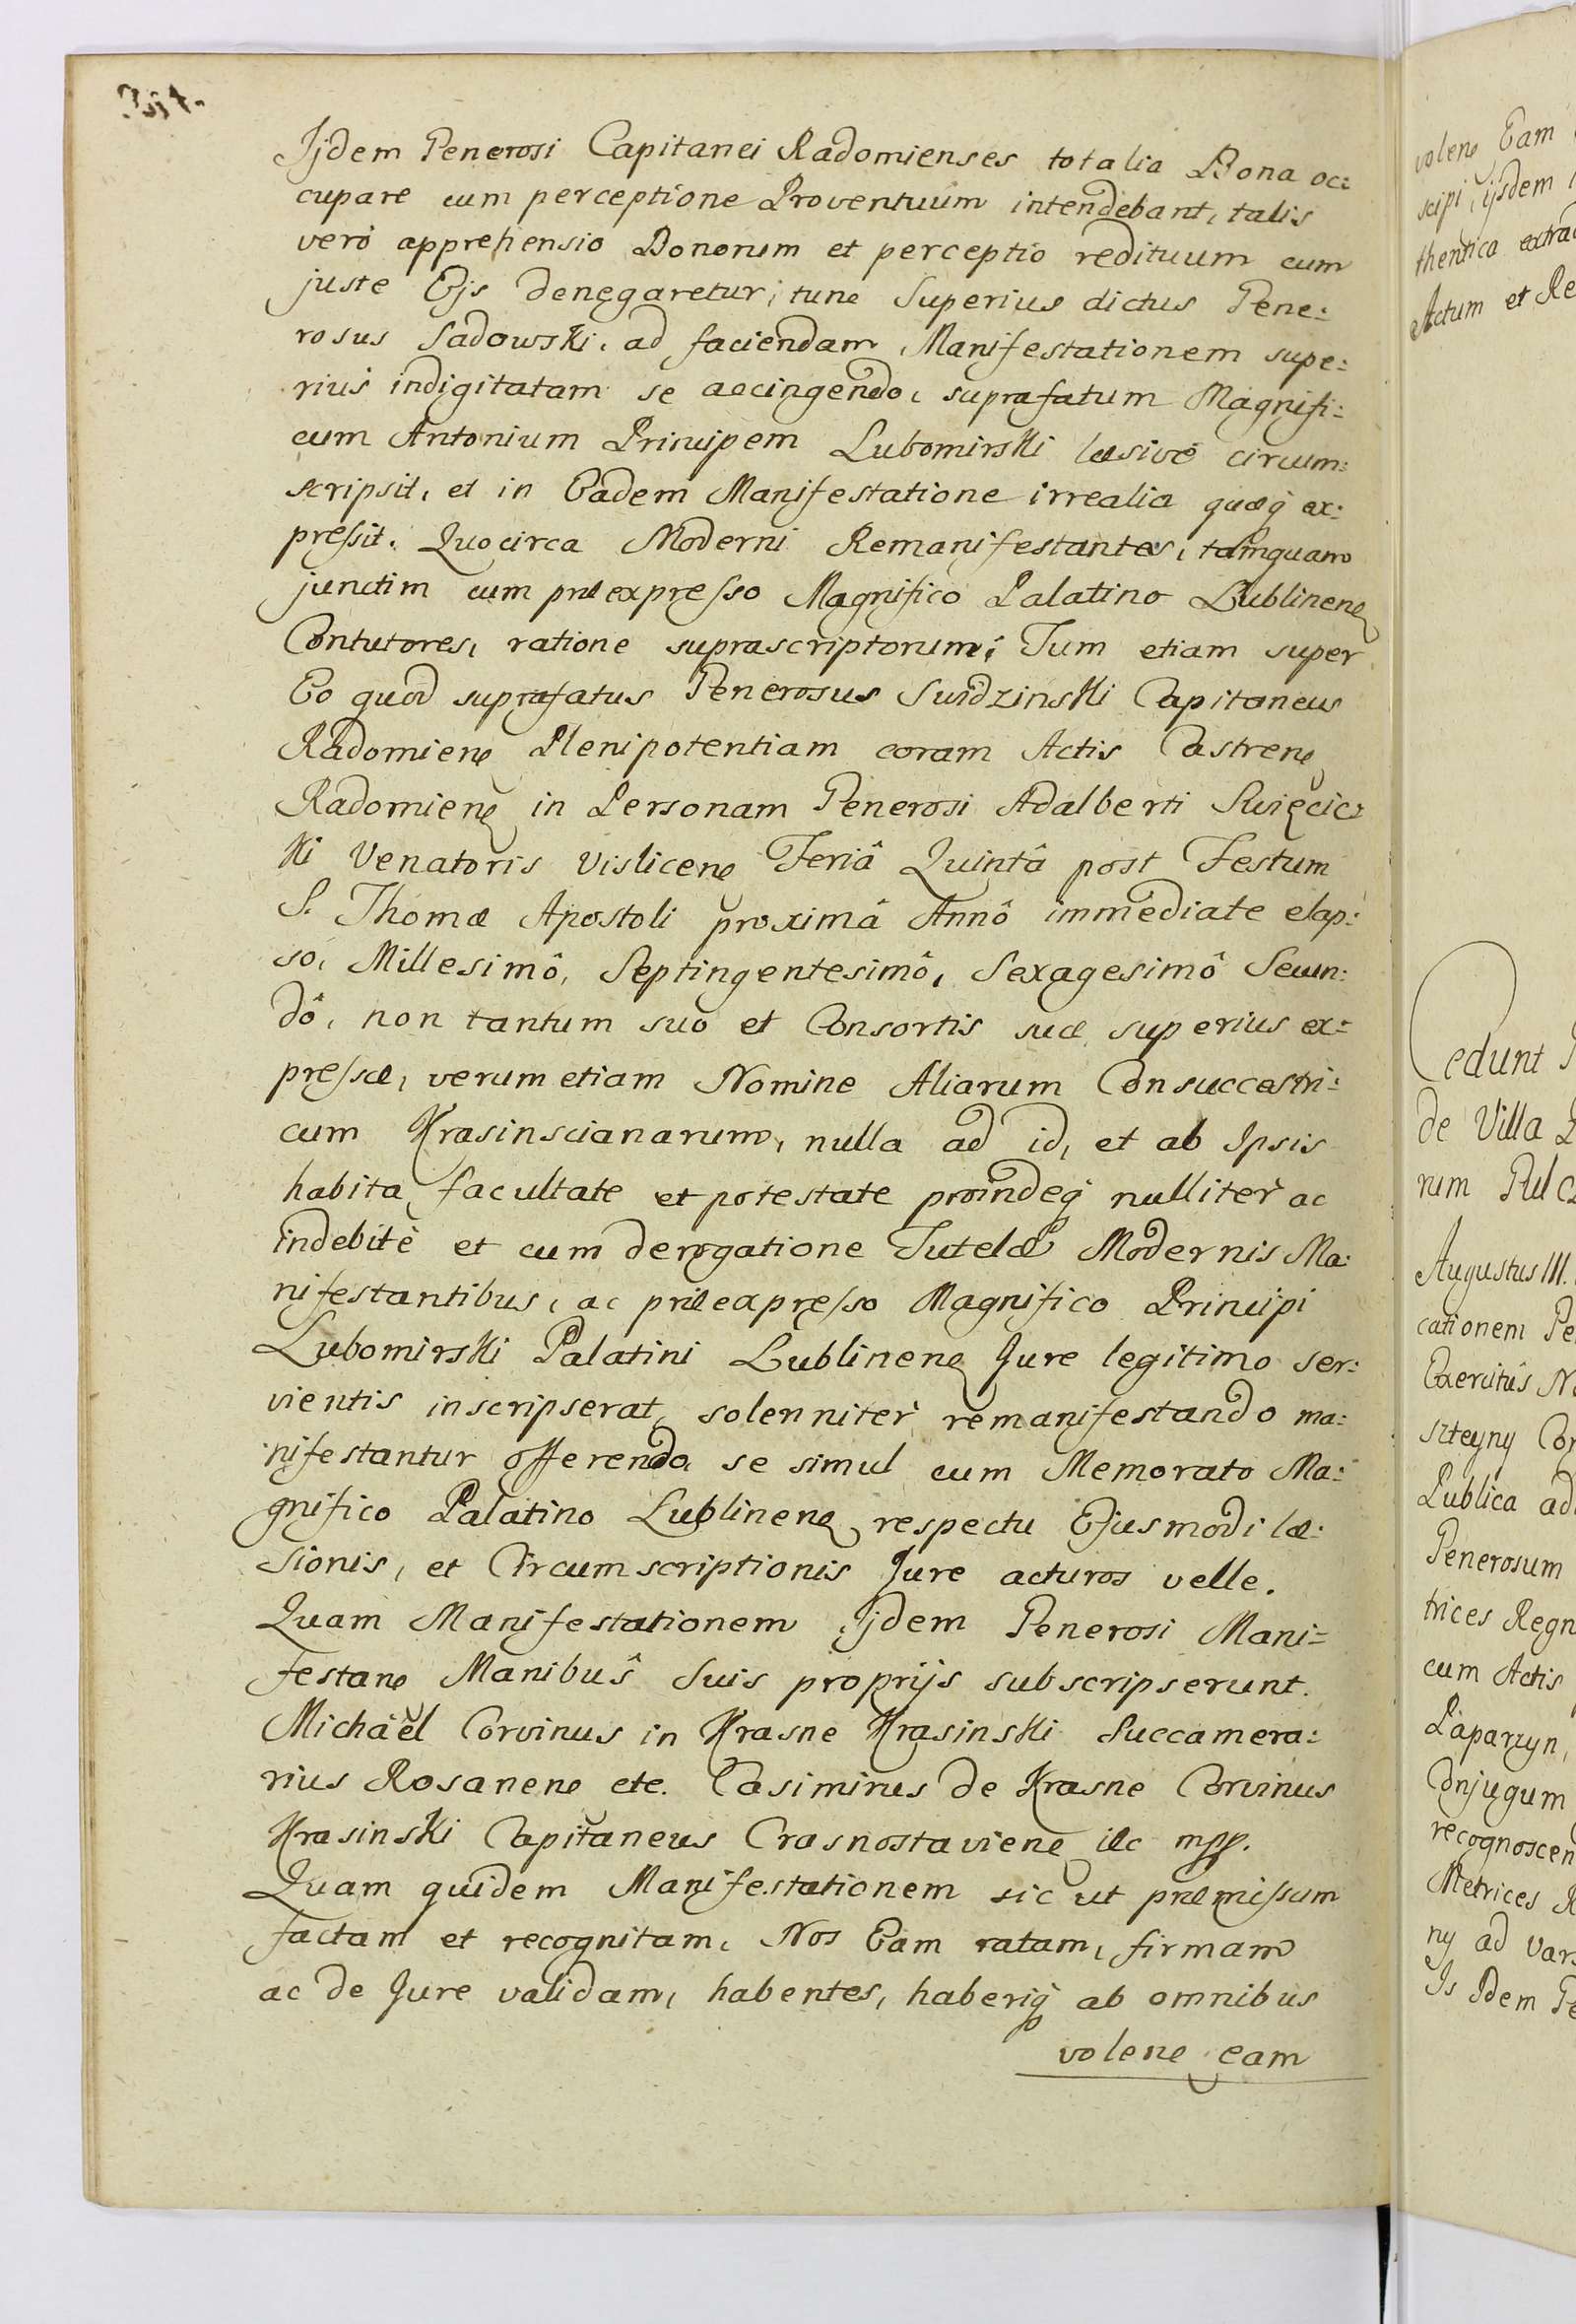 Ijdem Generosi Capitanei Radomienses totalia Bona oc:
cupare cum perceptione Proventuum intendebant, talis
verò apprehensio Bonorum et perceptio redituum cum
juste Ejs denegaretur, tunc Superius dictus Gene:
rosus Sadowski, ad faciendam Manifestationem supe:
rius indigitatam se accingendo, suprafatum Magnifi:
cum Antonium Principem Lubomirski læsivè circum:
scripsit, et in Eadem Manifestatione irrealia quæq ex:
pressit. Quocirca Moderni Remanifestantes, tamquam
junctim cum præexpresso Magnifico Palatino Lublinen
Contutores, ratione suprascriptorum; Tum etiam super
Eo quod suprafatus Generosus Swidzinski Capitaneus
Radomien Plenipotentiam coram Actis Castren
Radomien in Personam Generosi Adalberti Swięcic:
ki Venatoris Vislicen Feriâ Quintâ post Festum
S. Thomæ Apostoli proximâ Annô immediate elap:
so, Millesimô, Septingentesimô, Sexagesimô Secun:
dô, non tantum suo et Consortis suæ superius ex:
pressæ, verum etiam Nomine Aliarum Consuccestri:
cum Krasinscianarum, nulla ad id, et ab Ipsis
habita facultate et potestate proindeq nulliter ac
indebitè et cum derogatione Tutelæ Modernis Ma:
nifestantibus, ac præexpresso Magnifico Principi
Lubomirski Palatini Lublinen Jure legitimo ser:
vientis inscripserat, solenniter remanifestando ma:
nifestantur offerendo se simul cum Memorato Ma:
gnifico Palatino Lublinen respectu Ejusmodi læ:
sionis, et Circumscriptionis Jure acturos velle.
Quam Manifestationem Ijdem Generosi Mani=
festan Manibus Suis proprijs subscripserunt.
Michaël Corvinus in Krasne Krasinski Succamera:
rius Rosanen etc. Casimirus de Krasne Corvinus
Krasinski Capitaneus Crasnostavien etc mpp.
Quam quidem Manifestationem sic ut præmissum
factam et recognitam, Nos Eam ratam, firmam
ac de Jure validam, habentes, haberiq ab omnibus
volen eam
volen Eam
scipi, ijsdem
thentica
Actum et Re
Cedunt
de Villa
rum
Augustus III.
cationem Ge
Exercitûs
Publica ad
Generosum
trices Regn
cum Actis
Conjugum
recognoscen
Metrices
ny ad Vars
Is Idem Ge